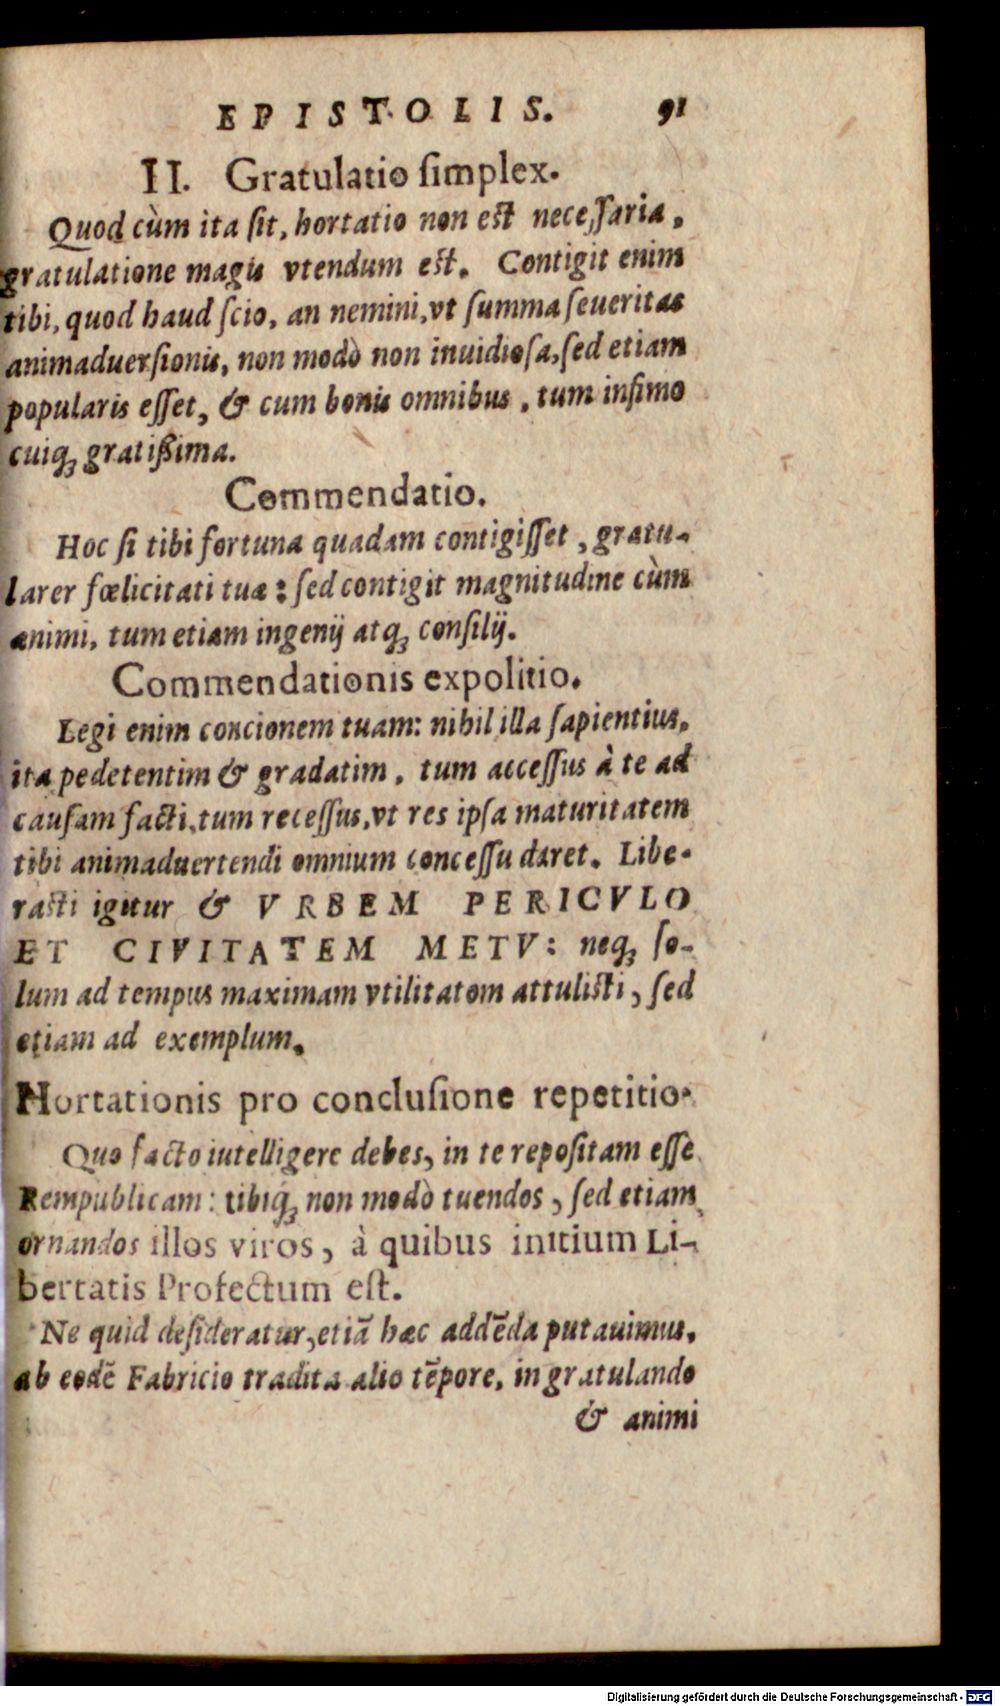 EPISTOLIS. 91
II. Gratulatio ſimplex.
Quod cùm ita ſit, hortatio non eſt neceſſaria,
gratulatione magis vtendum eſt. Contigit enim
tibi, quod haud ſcio, an nemini, vt ſumma ſeueritas
animaduerſionis, non modò non inuidioſa, ſed etiam
popularis eſſet, & cum bonis omnibus, tum infimo
cuiqꝫ gratißima.
Commendatio.
Hoc ſi tibi fortuna quadam contigiſſet, gratu-
larer fœlicitati tuæ: ſed contigit magnitudine cùm
animi, tum etiam ingenij atqꝫ conſilij.
Commendationis expolitio.
Legi enim concionem tuam: nihil illa ſapientius,
ita pedetentim & gradatim, tum acceſſus à te ad
cauſam facti, tum receſſus, vt res ipſa maturitatem
tibi animaduertendi omnium conceſſu daret. Libe-
raſti igitur & VRBEM PERICVLO
ET CIVITATEM METV: neqꝫ ſo-
lum ad tempus maximam vtilitatom attuliſti, ſed
etiam ad exemplum.
Hortationis pro concluſione repetitio.
Quo facto iutelligere debes, in te repoſitam eſſe
Rempublicam: tibiqꝫ non modò tuendos, ſed etiam
ornandos illos viros, à quibus initium Li-
bertatis Profectum eſt.
Ne quid deſideratur, etiā hæc addēda putauimus,
ab eodē Fabricio tradita alio tēpore, in gratulando
& animi
Digitalisierung gefördert durch die Deutsche Forschungsgemeinschaft - DFG